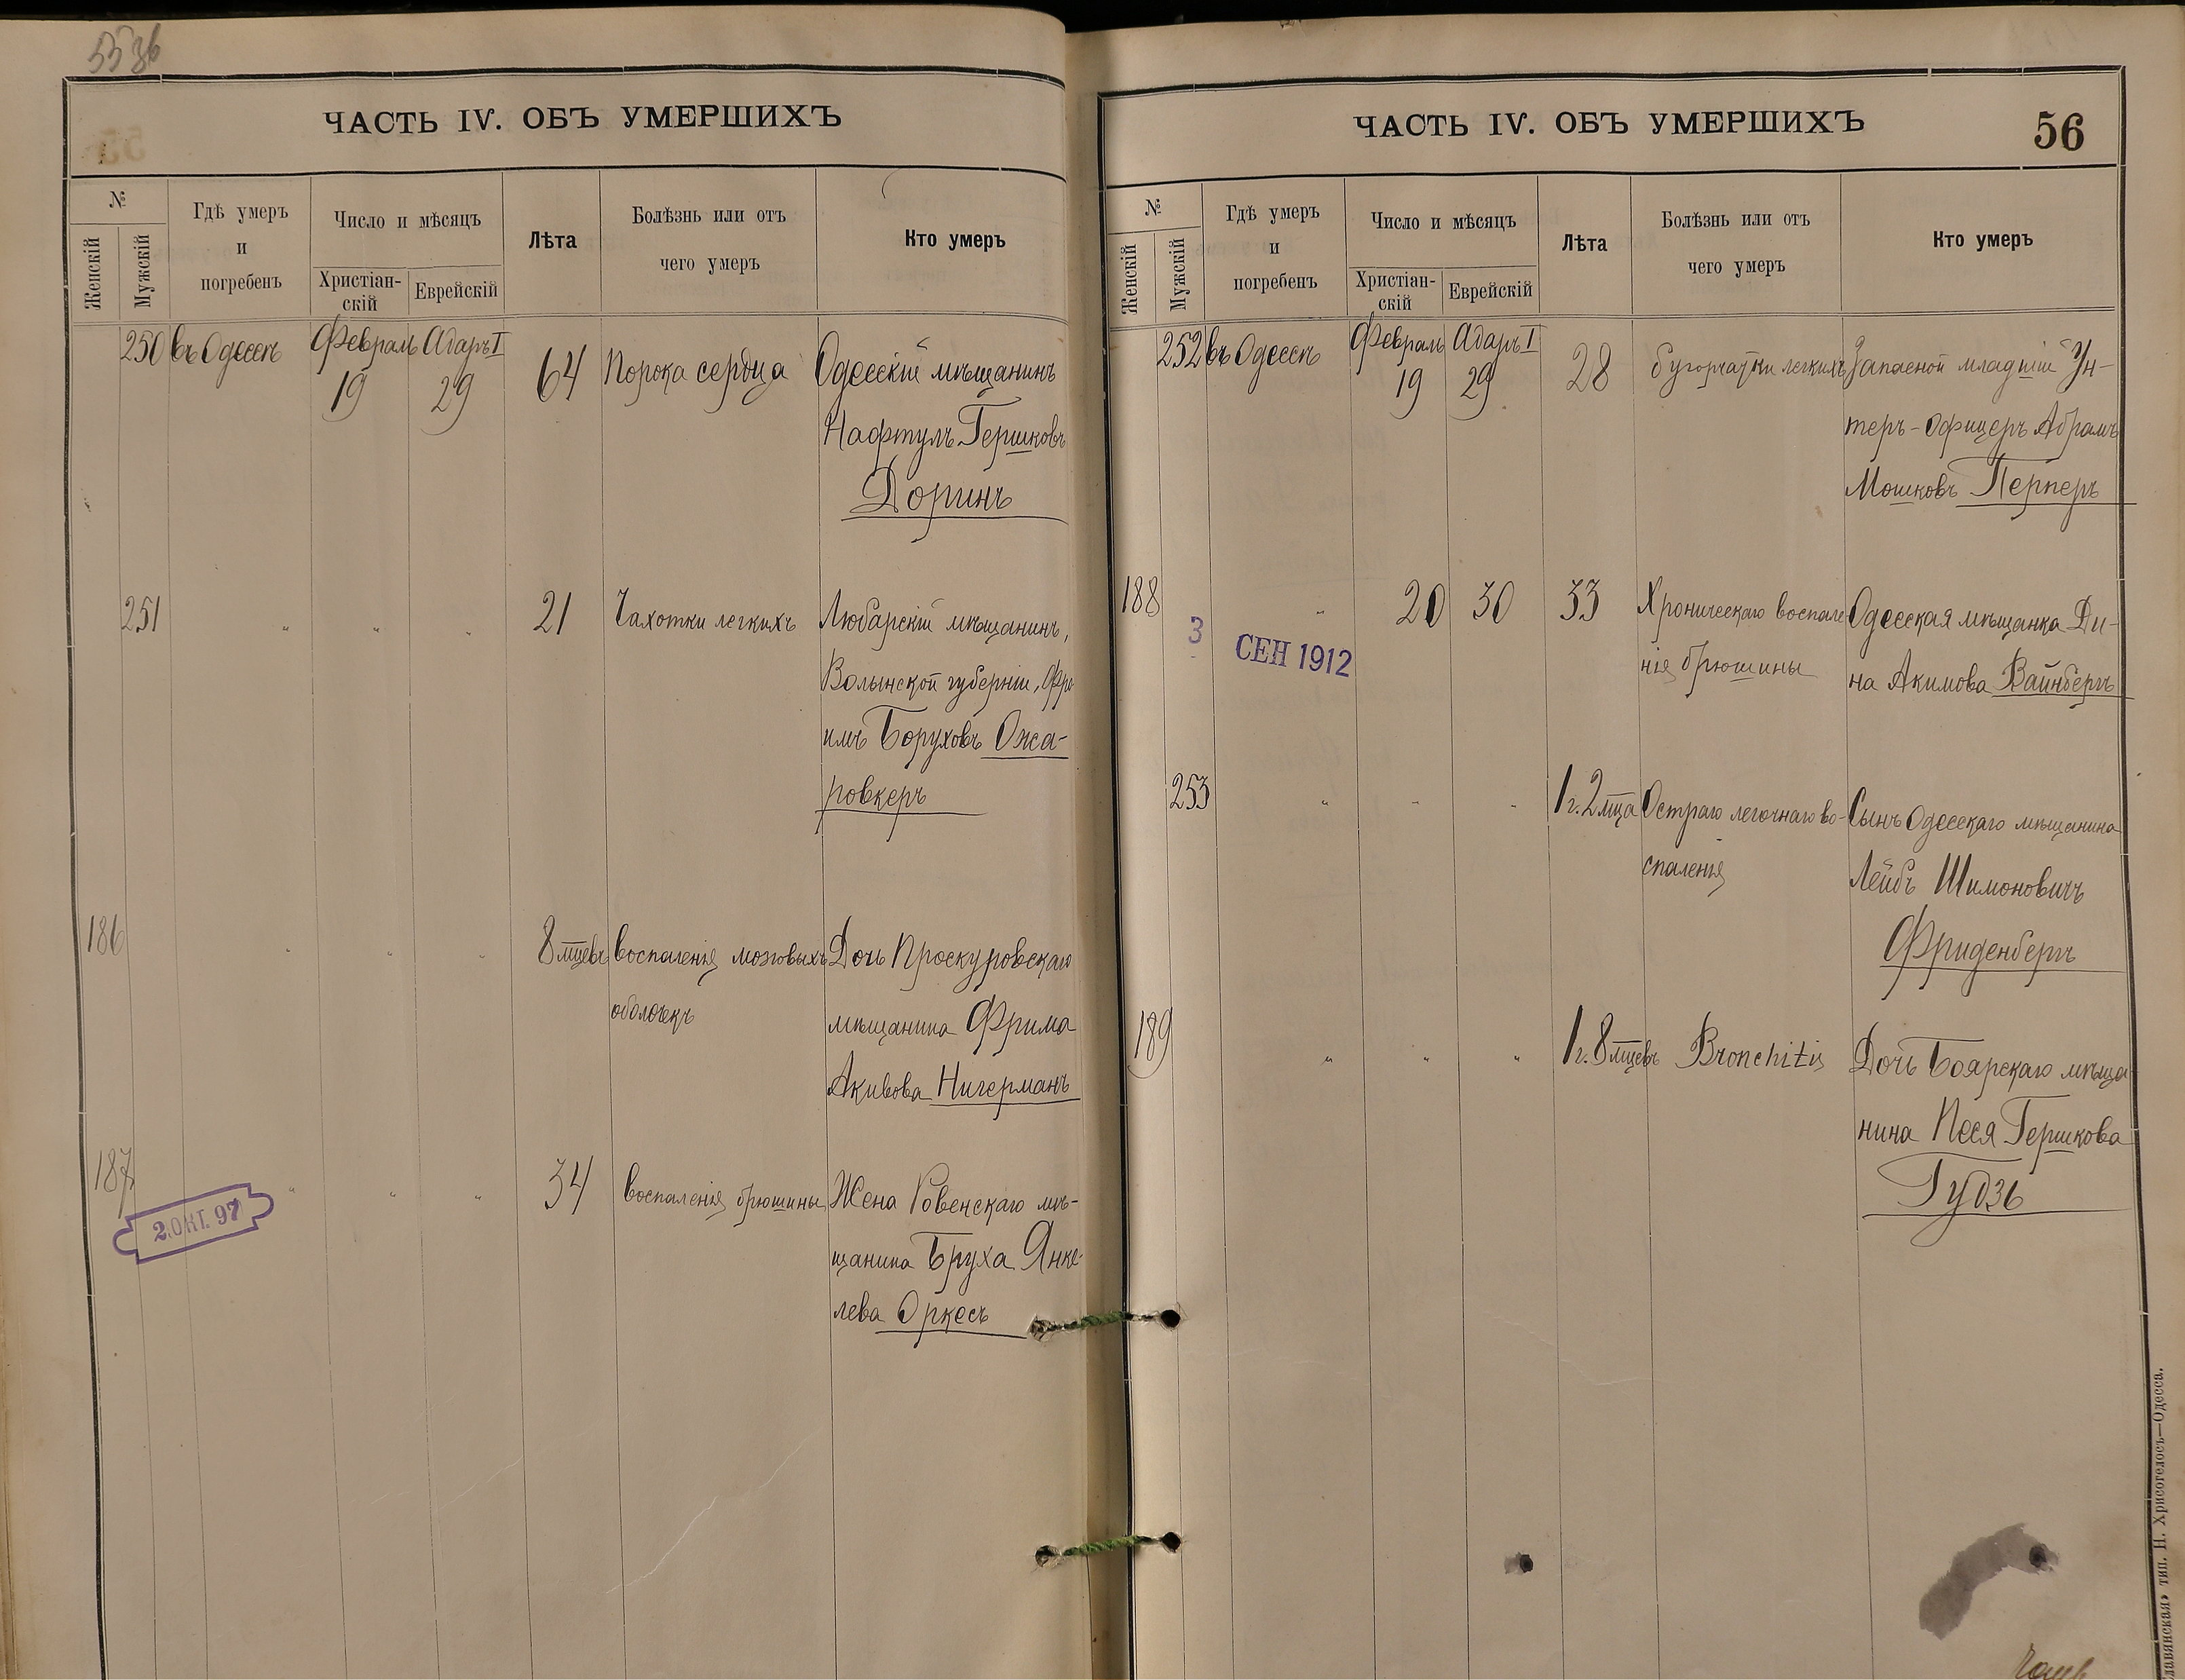 ЧАСТЬ IV. ОБЪ УМЕРШИХЪ
№
Женскій
Мужскій
Гдѣ умеръ
и
погребенъ
Число и мѣсяцъ
Христіан-
скій
Еврейскій
Лѣта
Болѣзнь или отъ
чего умеръ
Кто умеръ
250 въ Одессѣ Февраль Адаръ I
19 29 64 Порока сердца Одесскій мѣщанинъ
Нафтулъ Гершковъ
Доринъ
251 " " " 21 Чахотки легкихъ Любарскій мѣщанинъ,
Волынской губерніи, Фро-
имъ Боруховъ Ожа-
ровкеръ
186 " " " 8 мцевъ воспаленія мозговыхъ Дочь Проскуровскаго
оболочекъ мѣщанина Фрима
Акивова Нигерманъ
187 " " " 34 воспаленія брюшины Жена Ровенскаго мѣ-
щанина Бруха Янке-
лева Оркесъ
2. ОКТ. 97
ЧАСТЬ IV. ОБЪ УМЕРШИХЪ
56
№
Женскій
Мужскій
Гдѣ умеръ
и
погребенъ
Число и мѣсяцъ
Христіан-
скій
Еврейскій
Лѣта
Болѣзнь или отъ
чего умеръ
Кто умеръ
252 въ Одессѣ Февраль Адаръ I
19 29 28 бугорчатки легкихъ Запасной младшій Ун-
теръ-офицеръ Абрамъ
Мошковъ Перперъ
188 " 20 30 33 Хроническаго воспале- Одесская мѣщанка Ди-
нія брюшины на Акимова Вайнбергъ
3 СЕН 1912
253 " " " 1 г. 2 мца Остраго легочнаго во- Сынъ Одесскаго мѣщанина
спаленія Лейбъ Шимоновичъ
Фриденбергъ
189 " " " 1 г. 8 мцевъ Bronchitis Дочь Боярскаго мѣща-
нина Песя Гершкова
Гудзь
тип. Н. Хрисогелосъ—Одесса.